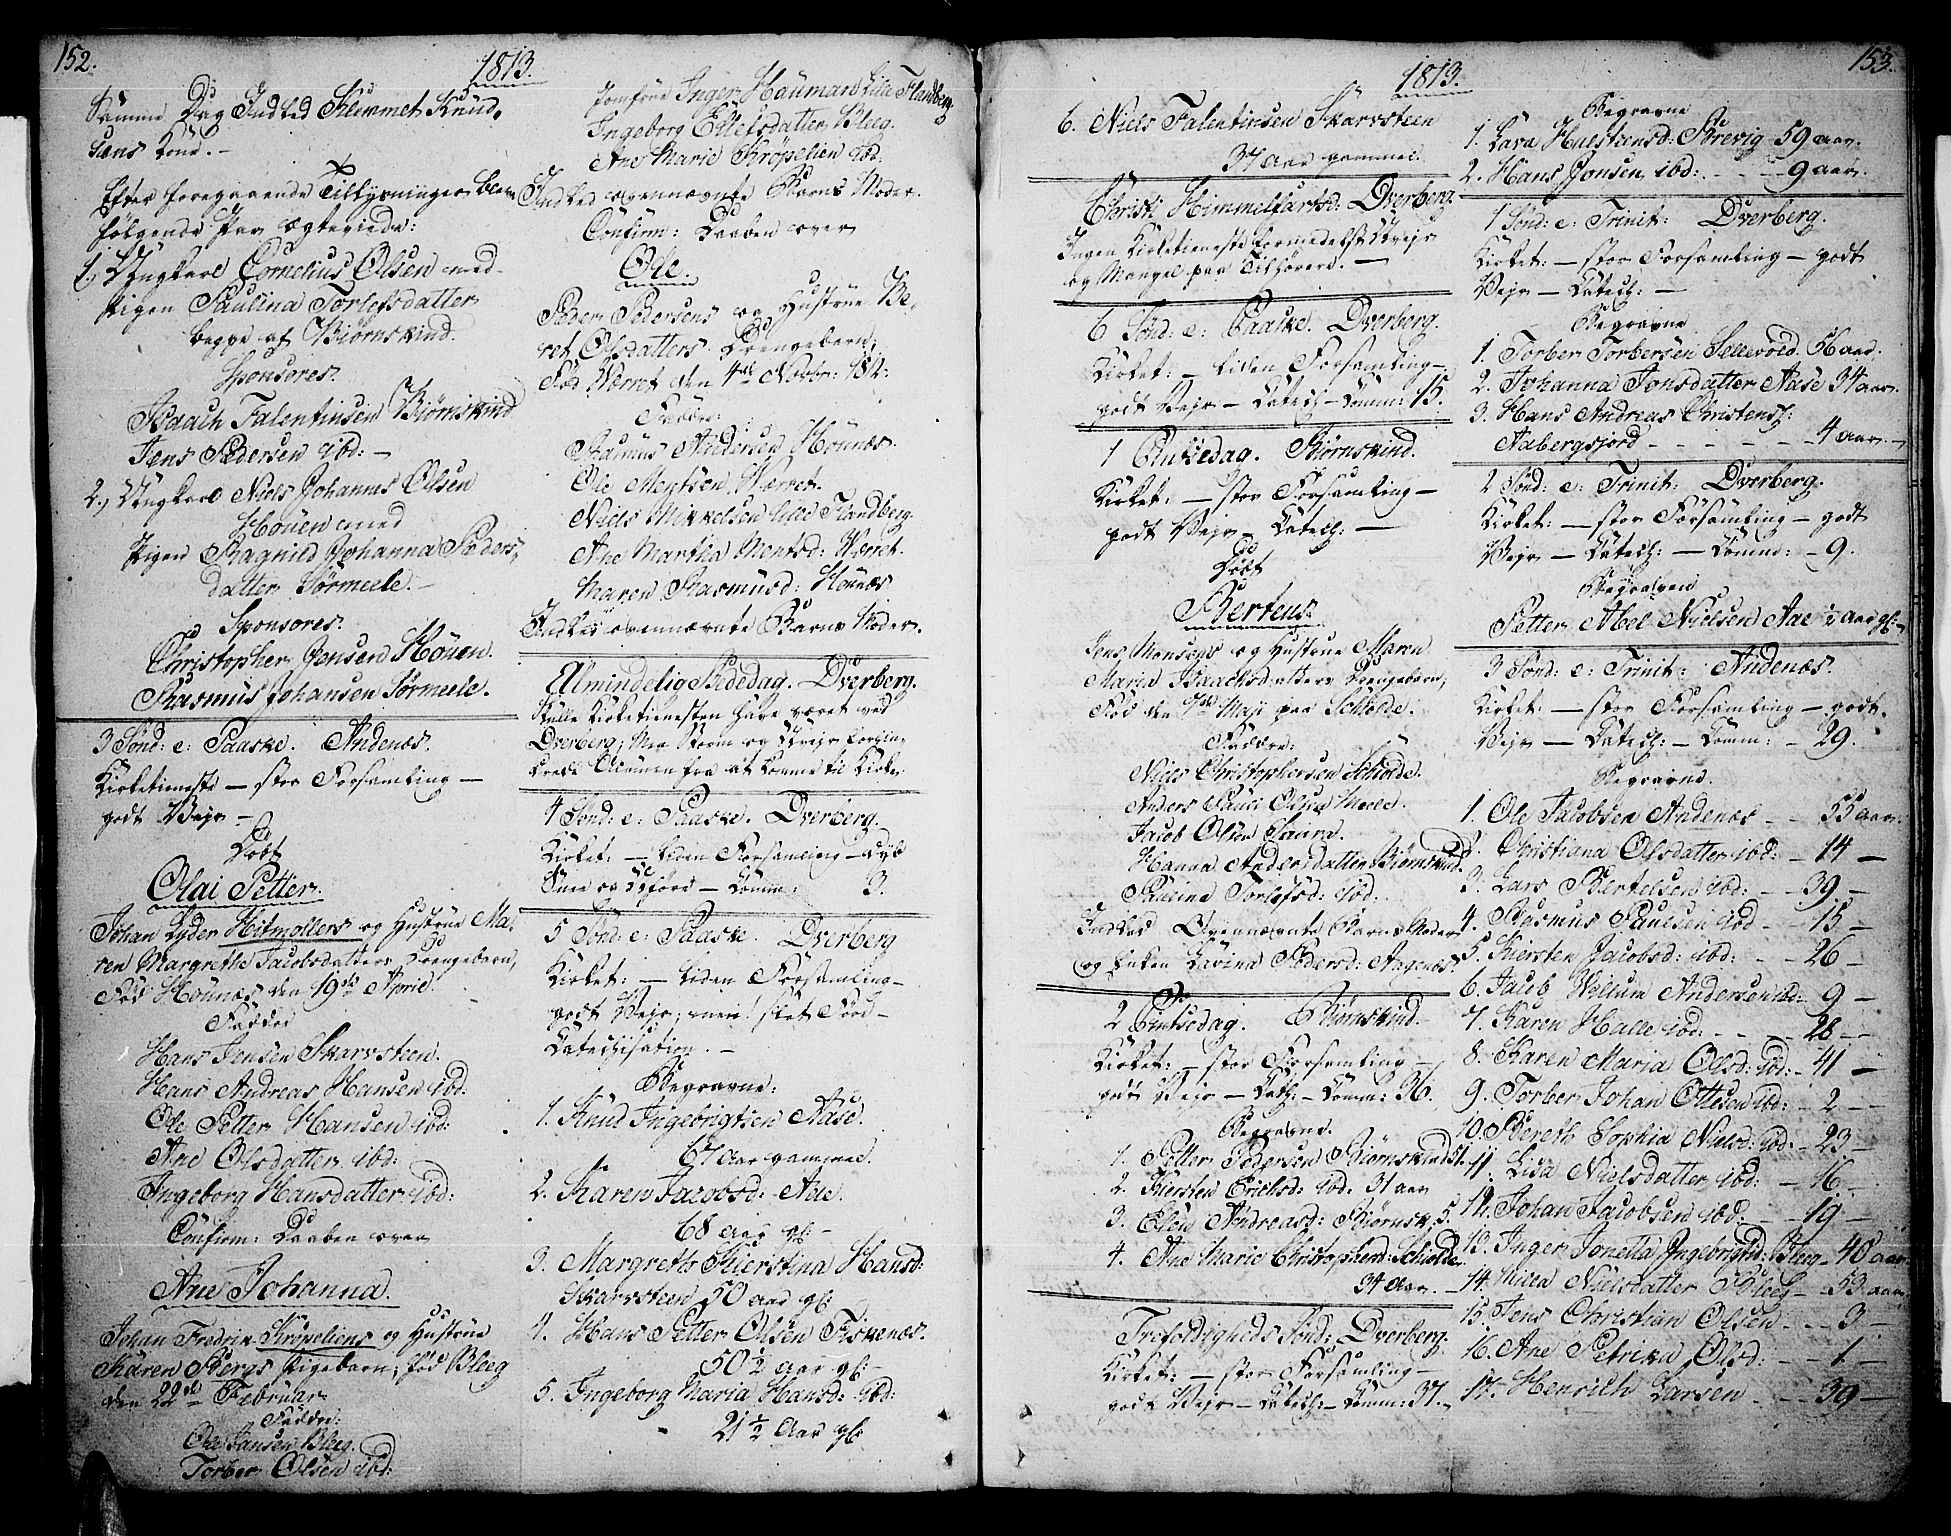 152.
1813.
Samme Dag Indled Klemmet Knud,
sens Kone. —
Efter foregaaende Tillysninger bleve
følgende Par ægteviede:
1, Ungkarl Cornelius Olsen med
Pigen Paulina Torlefsdatter
begge af Biørnskind.
Sponsores.
Isaach Falentinsen Biørnskind
Jens Pedersen ibd: —
2, Ungkarl Niels Johannes Olsen
Høuen med
Pigen Ragnild Johanna Peders,
datter Sørmeele. —
Sponsores.
Christopher Jensen Høuen.
Rasmus Johansen Sørmeele.
3 Sønd: e: Paaske. Andenæs.
Kirketieneste — stor Forsamling —
godt Vejr —
Døbt
Olai Petter.
Johan Lyder Hitmøllers og Hustrue Ma,
ren Margrethe Jacobsdatters Drengebarn,
Fød Høunæs den 19de April.
Faddere
Hans Jensen Skarvsteen.
Hans Andreas Hansen ibd:
Ole Petter Hansen ibd:
Ane Olsdatter ibd:
Ingeborg Hansdatter ibd:
Confirm: Daaben over
Ane Johanna.
Johan Fredrik Krøpeliens og Hustrue
Karen Bergs Pigebarn, fød Bleeg
den 22de Februar
Fadde:
Ole Jansen Bleeg.
Torber Olsen ibd:
Jomfrue Inger Høuman Lille Flandberg
Ingeborg Ellefsdatter Bleeg.
Ane Marie Krøpelien ibd:
Indled ovennævnte Barns Moder.
Confirm: Daaben over
Ole.
Peder Pedersens og Hustrue Be,
ret Olsdatters Drengebarn,
Fød Værret den 4de Novbr: 1812.
Faddr:
Rasmus Andersen Høunæs.
Ole Mentsen Værret.
Niels Mikkelsen Lille Flandberg.
Ane Martha Mentsd: Værret.
Maren Rasmusd: Høunæs
Indled ovennævnte Barns Moder.
Almindelig Bededag. Dverberg.
Skulle Kirketienesten have været ved
Dverberg, men Storm og Uvejr forhin,
drede Almuen fra at komme til Kirke.
4 Sønd: e: Paaske. Dverberg.
Kirket: — Liden Forsamling — dyb
Snee og Uføre — Comm: 3.
5 Sønd: e: Paaske. Dverberg
Kirket: — Liden Forsamling —
godt Vejr, men slet Føre —
Catechisation. —
Begravne:
1. Knud Ingebrigtsen Aase.
67 Aar gammel.
2. Karen Jacobsd: Ase.
68 Aar gl: —
3. Margreth Kierstina Hansd:
Skarvsteen 50 Aar gl:
4. Hans Petter Olsen Fiskenæs.
50 1/2 Aar gl: —
5. Ingeborg Maria Hansd: ibd:
21 1/2 Aar gl:
153.
1813.
6. Niels Falentinsen Skarvsteen
37 Aar gammel.
Christi Himmelfartsd: Dverberg.
Ingen Kirketieneste formedelst Uvejr
og Mangel paa Tilhørere. —
6 Sønd: e: Paaske. Dverberg.
Kirket: — Liden Forsamling —
godt Vejr — Catech — Comm: 15.
1 Pintsedag. Biørnskind.
Kirket: — stor Forsamling —
godt Vejr — Catech: —
Døbt
Berteus.
Jens Monsens og Hustrue Maren
Maria Isaachsdatters Drengebarn,
Fød den 7de Maji paa Schiolde.
Faddere:
Niels Christophersen Schiolde.
Anders Pauel Olsen Meele.
Jacob Olsen Saura.
Hanna Andersdatter Biørnskind.
Paulina Torlefsd: ibd:
Indled Ovennævnte Barns Moder
og Enken Lavina Pedersd: Aagenæs.
2 Pintsedag. Biørnskind.
Kirket: — stor Forsamling —
godt Vejr — Catech: — Comm: 36.
Begravne.
1. Petter Pedersen Biørnskind 51.
2. Kiersten Erichsd: ibd: 31 aar
3. Elen Andreasd: Biørnsk: 5.
4. Ane Marie Christophersd: Schiolde
34 Aar.
Trefoldigheds Sønd: Dverberg.
Kirket: — stor Forsamling —
godt Vejr — Catech: — Comm: 37.
Begravne
1. Lava Halstensd: Brevig 59 aar.
2. Hans Jonsen ibd: - - - 9 aar.
1 Sønd: e: Trinit: Dverberg.
Kirket: — stor Forsamling — godt
Vejr — Catech: —
Begravne
1. Torber Torbersen Sellevold. 56 aar.
2. Johanna Jonsdatter Aase 34 aar.
3. Hans Andreas Christens:
Aabergsjord - - - - - 4 aar. —
2 Sønd: e: Trinit: Dverberg.
Kirket: — stor Forsamling — godt
Vejr — Catech: — Comm: — 9.
Begraven
Petter Abel Nielsen Ase 1/2 Aar gl:
3 Sønd: e: Trinit: Andenæs.
Kirket: — stor Forsamling — godt
Vejr — Catech: — Comm: — 29.
Begravne.
1. Ole Jacobsen Andenæs - - 55 aar.
2. Christiana Olsdatter ibd: — 14 —
3. Lars Bertelsen ibd: - - 39 —
4. Rasmus Paulsen ibd - - 15 —
5. Kiersten Jacobsd: ibd: - - 26 —
6. Jacob Wilum Andersen ibd: - 9 —
7. Karen Halle ibd: - - - 28 —
8. Karen Maria Olsd: ibd: - 41 —
9. Torber Johan Ottesen ibd: - 2 —
10. Bereth Sophia Nielsd: ibd: - 23 —
11. Lisa Nielsdatter ibd: — 16. —
12. Johan Jacobsen ibd: - - 19 —
13. Inger Jonetta Ingebrigtsd: Bleeg — 40 aar
14. Milea Nielsdatter Bleeg — 53 aar
15. Jens Christian Olsen - - 3 —
16. Ane Petrika Olsd: - - - 1 —
17. Henrich Larsen - - - 39 —